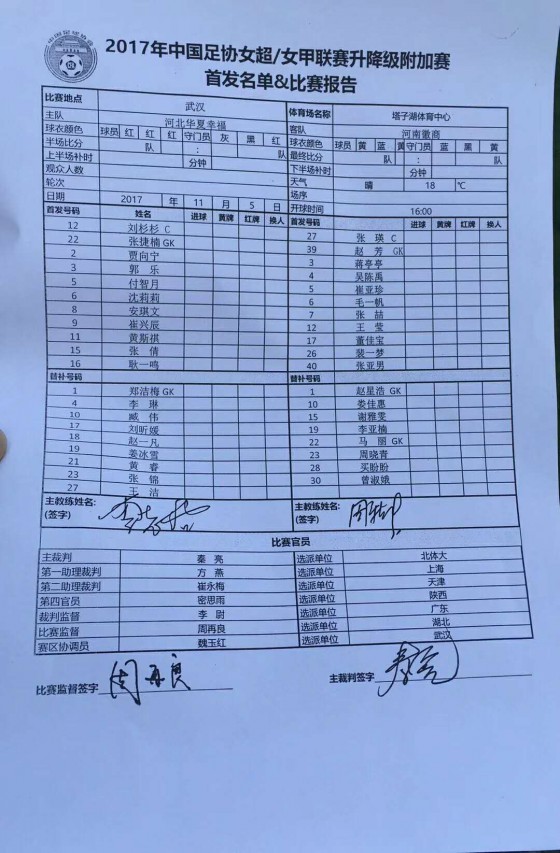 2017年中国足协女超/女甲联赛升降级附加赛
首发名单&比赛报告
比赛地点 武汉 体育场名称 塔子湖体育中心
主队 河北华夏幸福 客队 河南徽商
球衣颜色 球员 红 红 红 守门员 灰 黑 红 球衣颜色 球员 黄 蓝 黄 守门员 蓝 黑 黄
半场比分 队 : 队 最终比分 队 : 队
上半场补时 分钟 下半场补时 分钟
观众人数 天气 晴 18 ℃
轮次 场序
日期 2017 年 11 月 5 日 开球时间 16:00
首发号码 姓名 进球 黄牌 红牌 换人 首发号码 进球 黄牌 红牌 换人
12 刘杉杉 C 27 张 瑛 C
22 张捷楠 GK 39 赵 芳 GK
2 贾向宁 3 蒋亭亭
3 郭 乐 4 吴陈禹
5 付智月 5 崔亚珍
6 沈莉莉 6 毛一帆
8 安琪文 7 张 喆
9 崔兴辰 12 王 莹
11 黄斯祺 17 董佳宝
15 张 倩 26 裴一梦
16 耿一鸣 40 张亚男
替补号码 替补号码
1 郑洁梅 GK 1 赵星浩 GK
4 李 琳 10 娄佳惠
10 臧 伟 15 谢雅雯
17 刘昕媛 19 李亚楠
18 赵一凡 22 马 丽 GK
19 姜冰雪 23 周晓青
21 黄 睿 28 买盼盼
23 张 锦 30 曾淑娥
27 王 洁
主教练姓名: 主教练姓名:
(签字) (签字)
比赛官员
主裁判 秦 亮 选派单位 北体大
第一助理裁判 方 燕 选派单位 上海
第二助理裁判 崔永梅 选派单位 天津
第四官员 密思雨 选派单位 陕西
裁判监督 李 尉 选派单位 广东
比赛监督 周再良 选派单位 湖北
赛区协调员 魏玉红 选派单位 武汉
比赛监督签字 周再良 主裁判签字